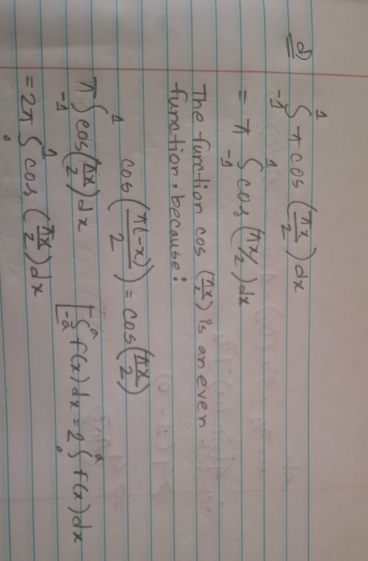 d) ∫₋₁¹ π cos (πx/2) dx
= π ∫₋₁¹ cos (πx/2) dx
The function cos (πx/2) is an even
function. because:
cos (π(-x)/2) = cos (πx/2)
π ∫₋₁¹ cos (πx/2) dx [∫₋ₐᵃ f(x) dx = 2 ∫₀ᵃ f(x) dx
= 2π ∫₀¹ cos (πx/2) dx